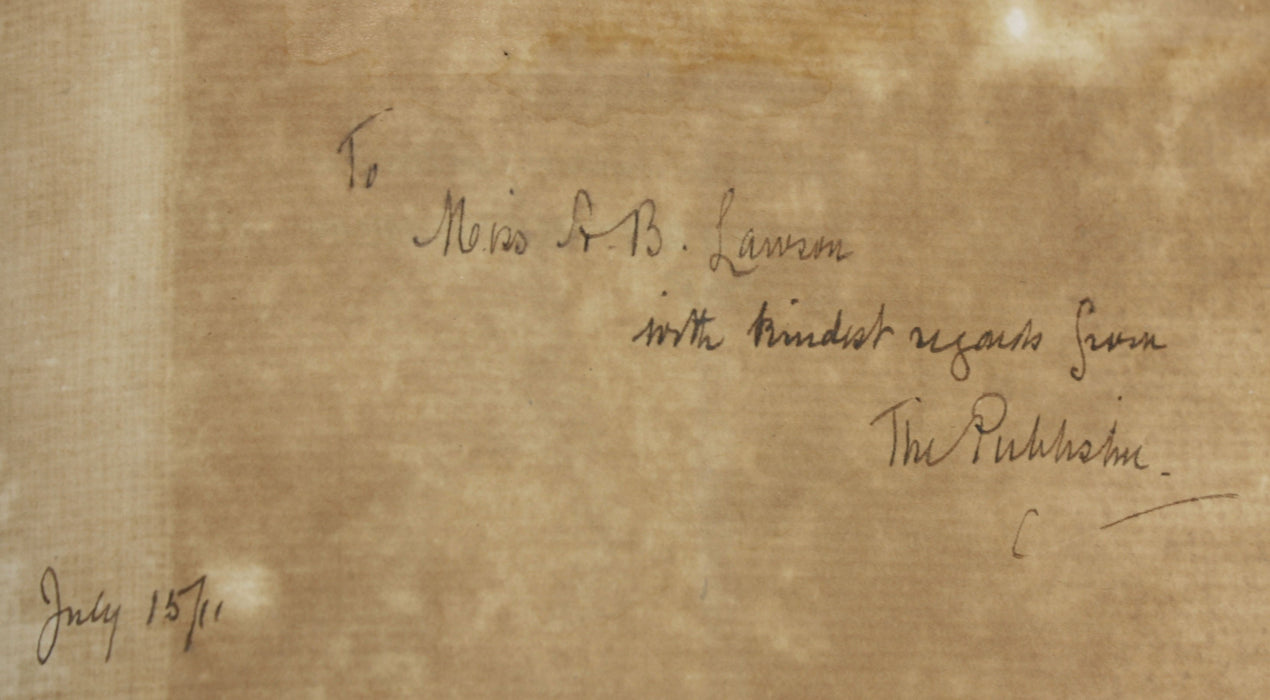 To
Miss A. B. Lawson
with kindest regards from
The Publisher.
July 15/11